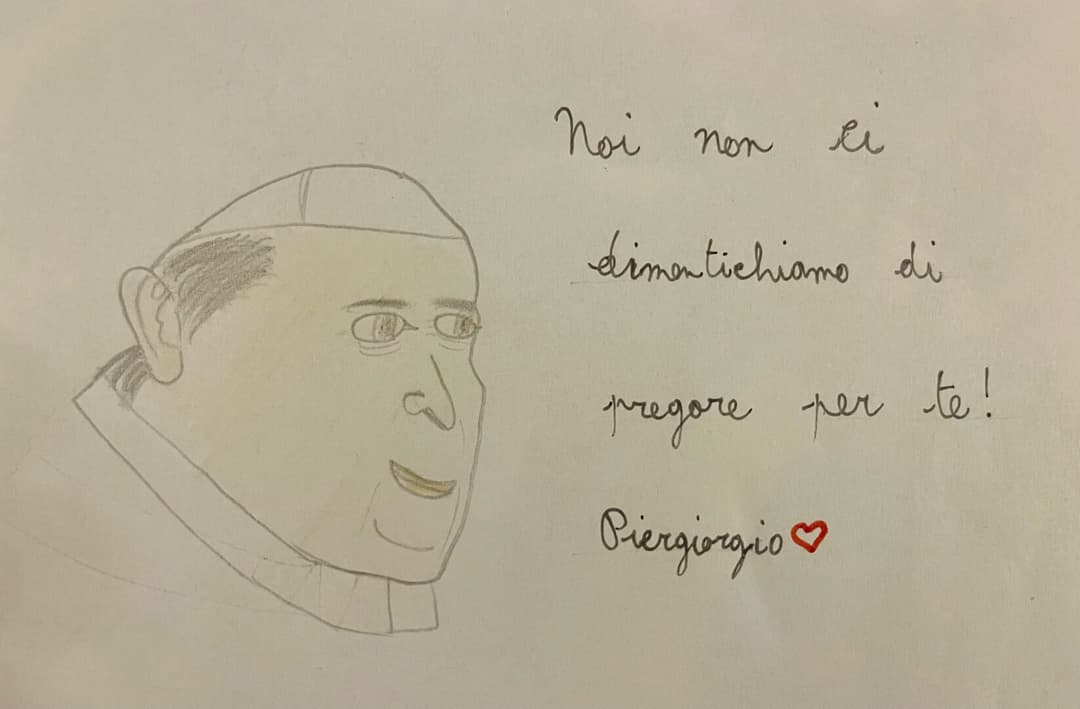 Noi non ci
dimentichiamo di
pregare per te!
Piergiorgio